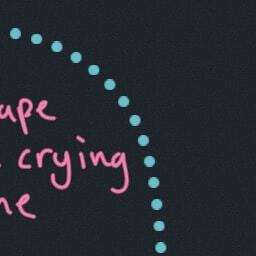 ape
crying
ne